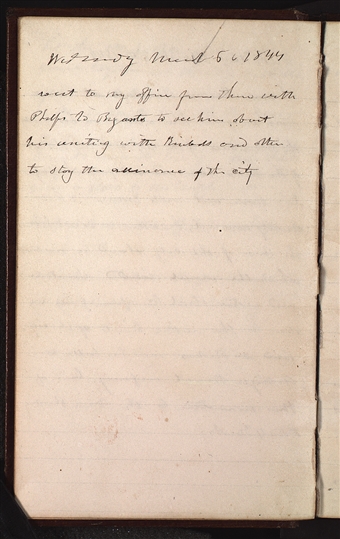 Wednesday March 6 1844
went to my office from there with
Phelps to to see him about
his uniting with and other
to stay the of the city